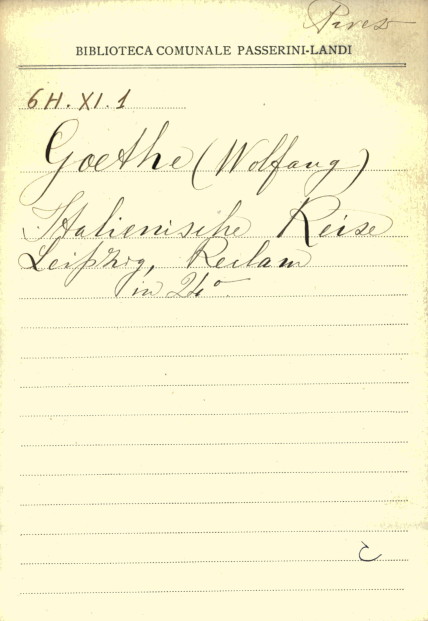 BIBLIOTECA COMUNALE PASSERINI-LANDI
6H.XI.1
Goethe (Wolfang)
Italienische Reise
Leipzig, Reclam
in 24º
C